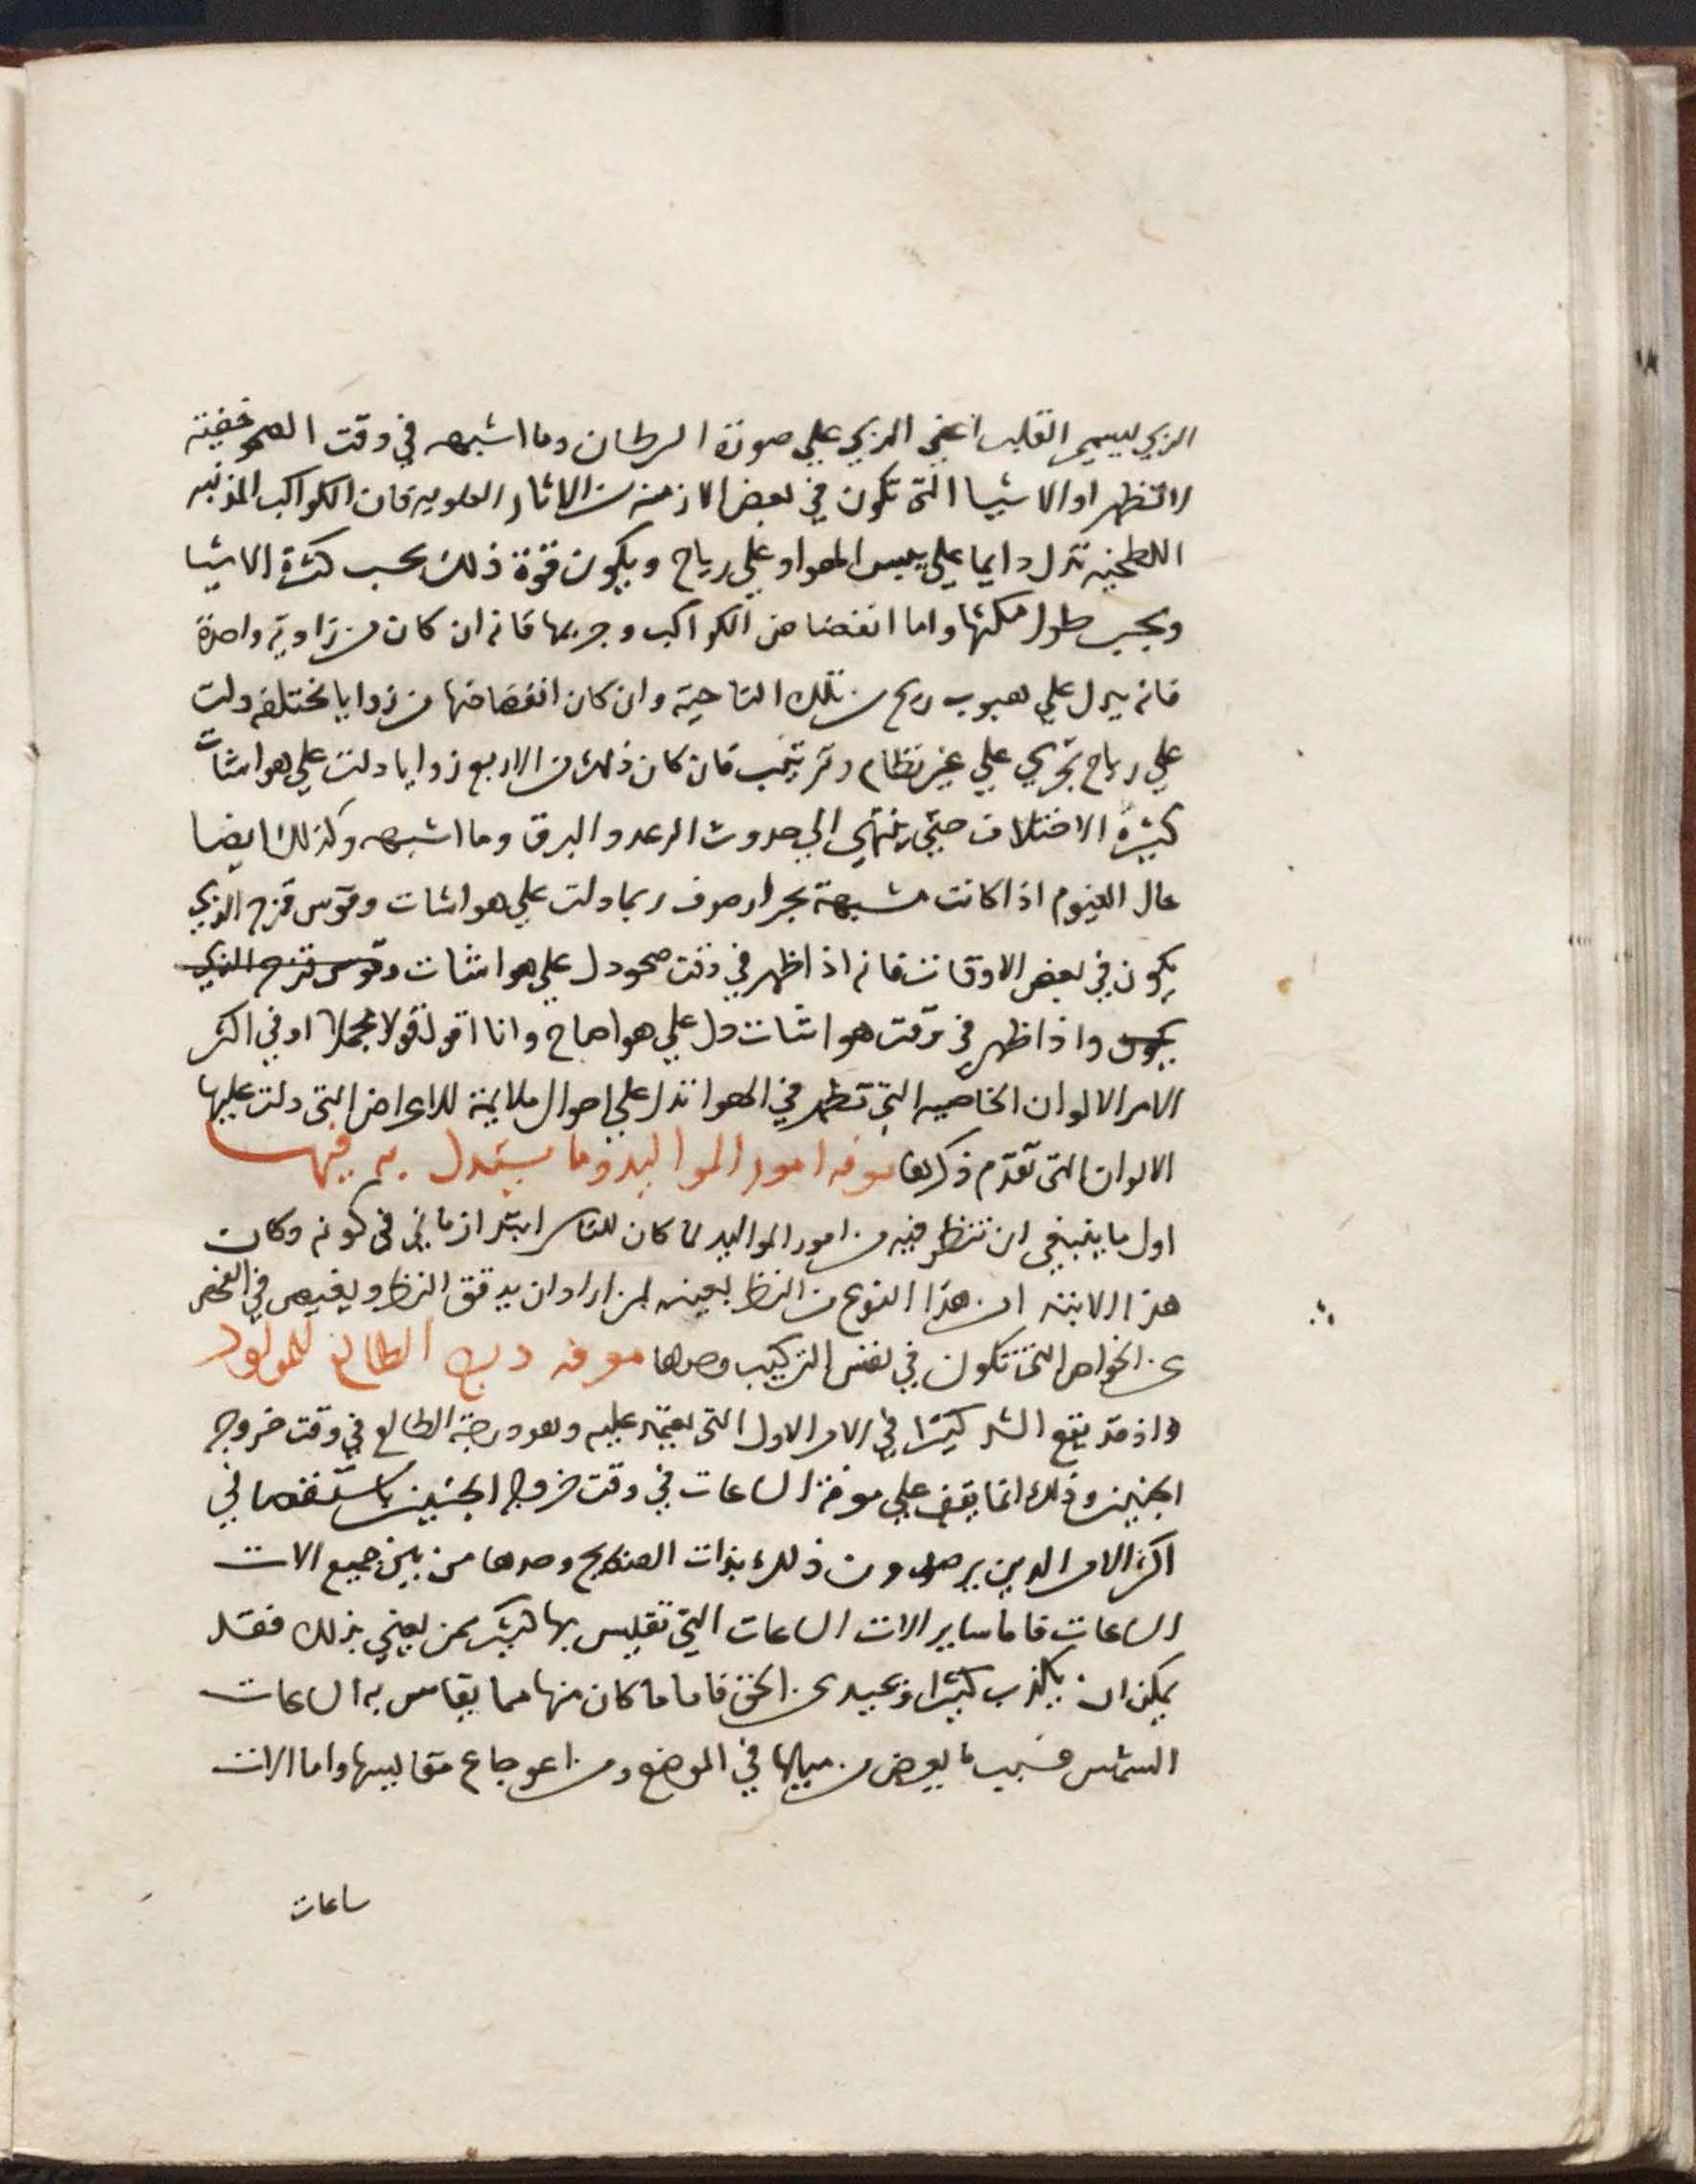 الذي ليسمى القلب اعني الذي علي صورة السرطان وما اشبهه في وقت الصحو خفية
لا تظهر او الاشيا التي تكون في بعض الازمنه من الاثار العلويه فان الكواكب المذنبه
اللطخيه تدل دايما علي يبس الهوا وعلي رياح ويكون قوة ذلك بحسب كثرة الاشيا
وبحسب طول مكثها واما انقضاض الكواكب وجريها فانه ان كان من زاوية واحدة
فانه يدل علي هبوب ريح من تلك الناحية وان كان انقضاضها من زوايا مختلفه دلت
علي رياح تجري علي غير نظام وترتيب فان كان ذلك من الاربع زوايا دلت علي هوا شات
كثيرة الاختلاف حتي ينتهي الي حدوث الرعد والبرق وما اشبهه وكذلك ايضا
حال الغيوم اذا كانت مشبهة بجزاز صوف ربما دلت علي هوا شات وقوس قزح الذي
يكون في بعض الاوقات فانه اذا ظهر في وقت صحو دل علي هوا شات وقوس قزح الذي
يكون واذا ظهر في وقت هوا شات دل علي هوا صاح وانا اقول قولا مجملا او في اكثر
الامر الالوان الخاصيه التي تظهر في الهوا تدل علي احوال ملايمة للاعراض التي دلت عليها
الالوان التي تقدم ذكرها معرفه امور المواليد وما يستدل به فيها
اول ما ينبغي ان تنظر فيه من امور المواليد لما كان للناس ابتدا زماني في كونه وكان
هذا الابتد ان هذا النوع من النظر بعينه لمن اراد ان يدقق النظر ويغيص في الفحص
عن الخواص التي تكون في نفس التركيب وحدها معرفه درج الطالع للمولود
واذ قد يقع الشك كثيرا في الامر الاول التي يعتمد عليه وهو درجة الطالع في وقت خروج
الجنين وذلك انما يقف علي معرفة الساعات في وقت خروج الجنين باستقصا في
اكثر الامر الذين يرصدون ذلك بذات الصفايح وحدها من بين جميع الات
الساعات فاما ساير الات الساعات التي تقيس بها كثير ممن يعني بذلك فقد
يمكن ان يكذب كثيرا وتحيد عن الحق فاما ما كان منها مما يقاس به الساعات
الشمس فبسبب ما يعرض من ميالها في الموضع ومن اعوجاج مقاييسها واما الات
ساعات